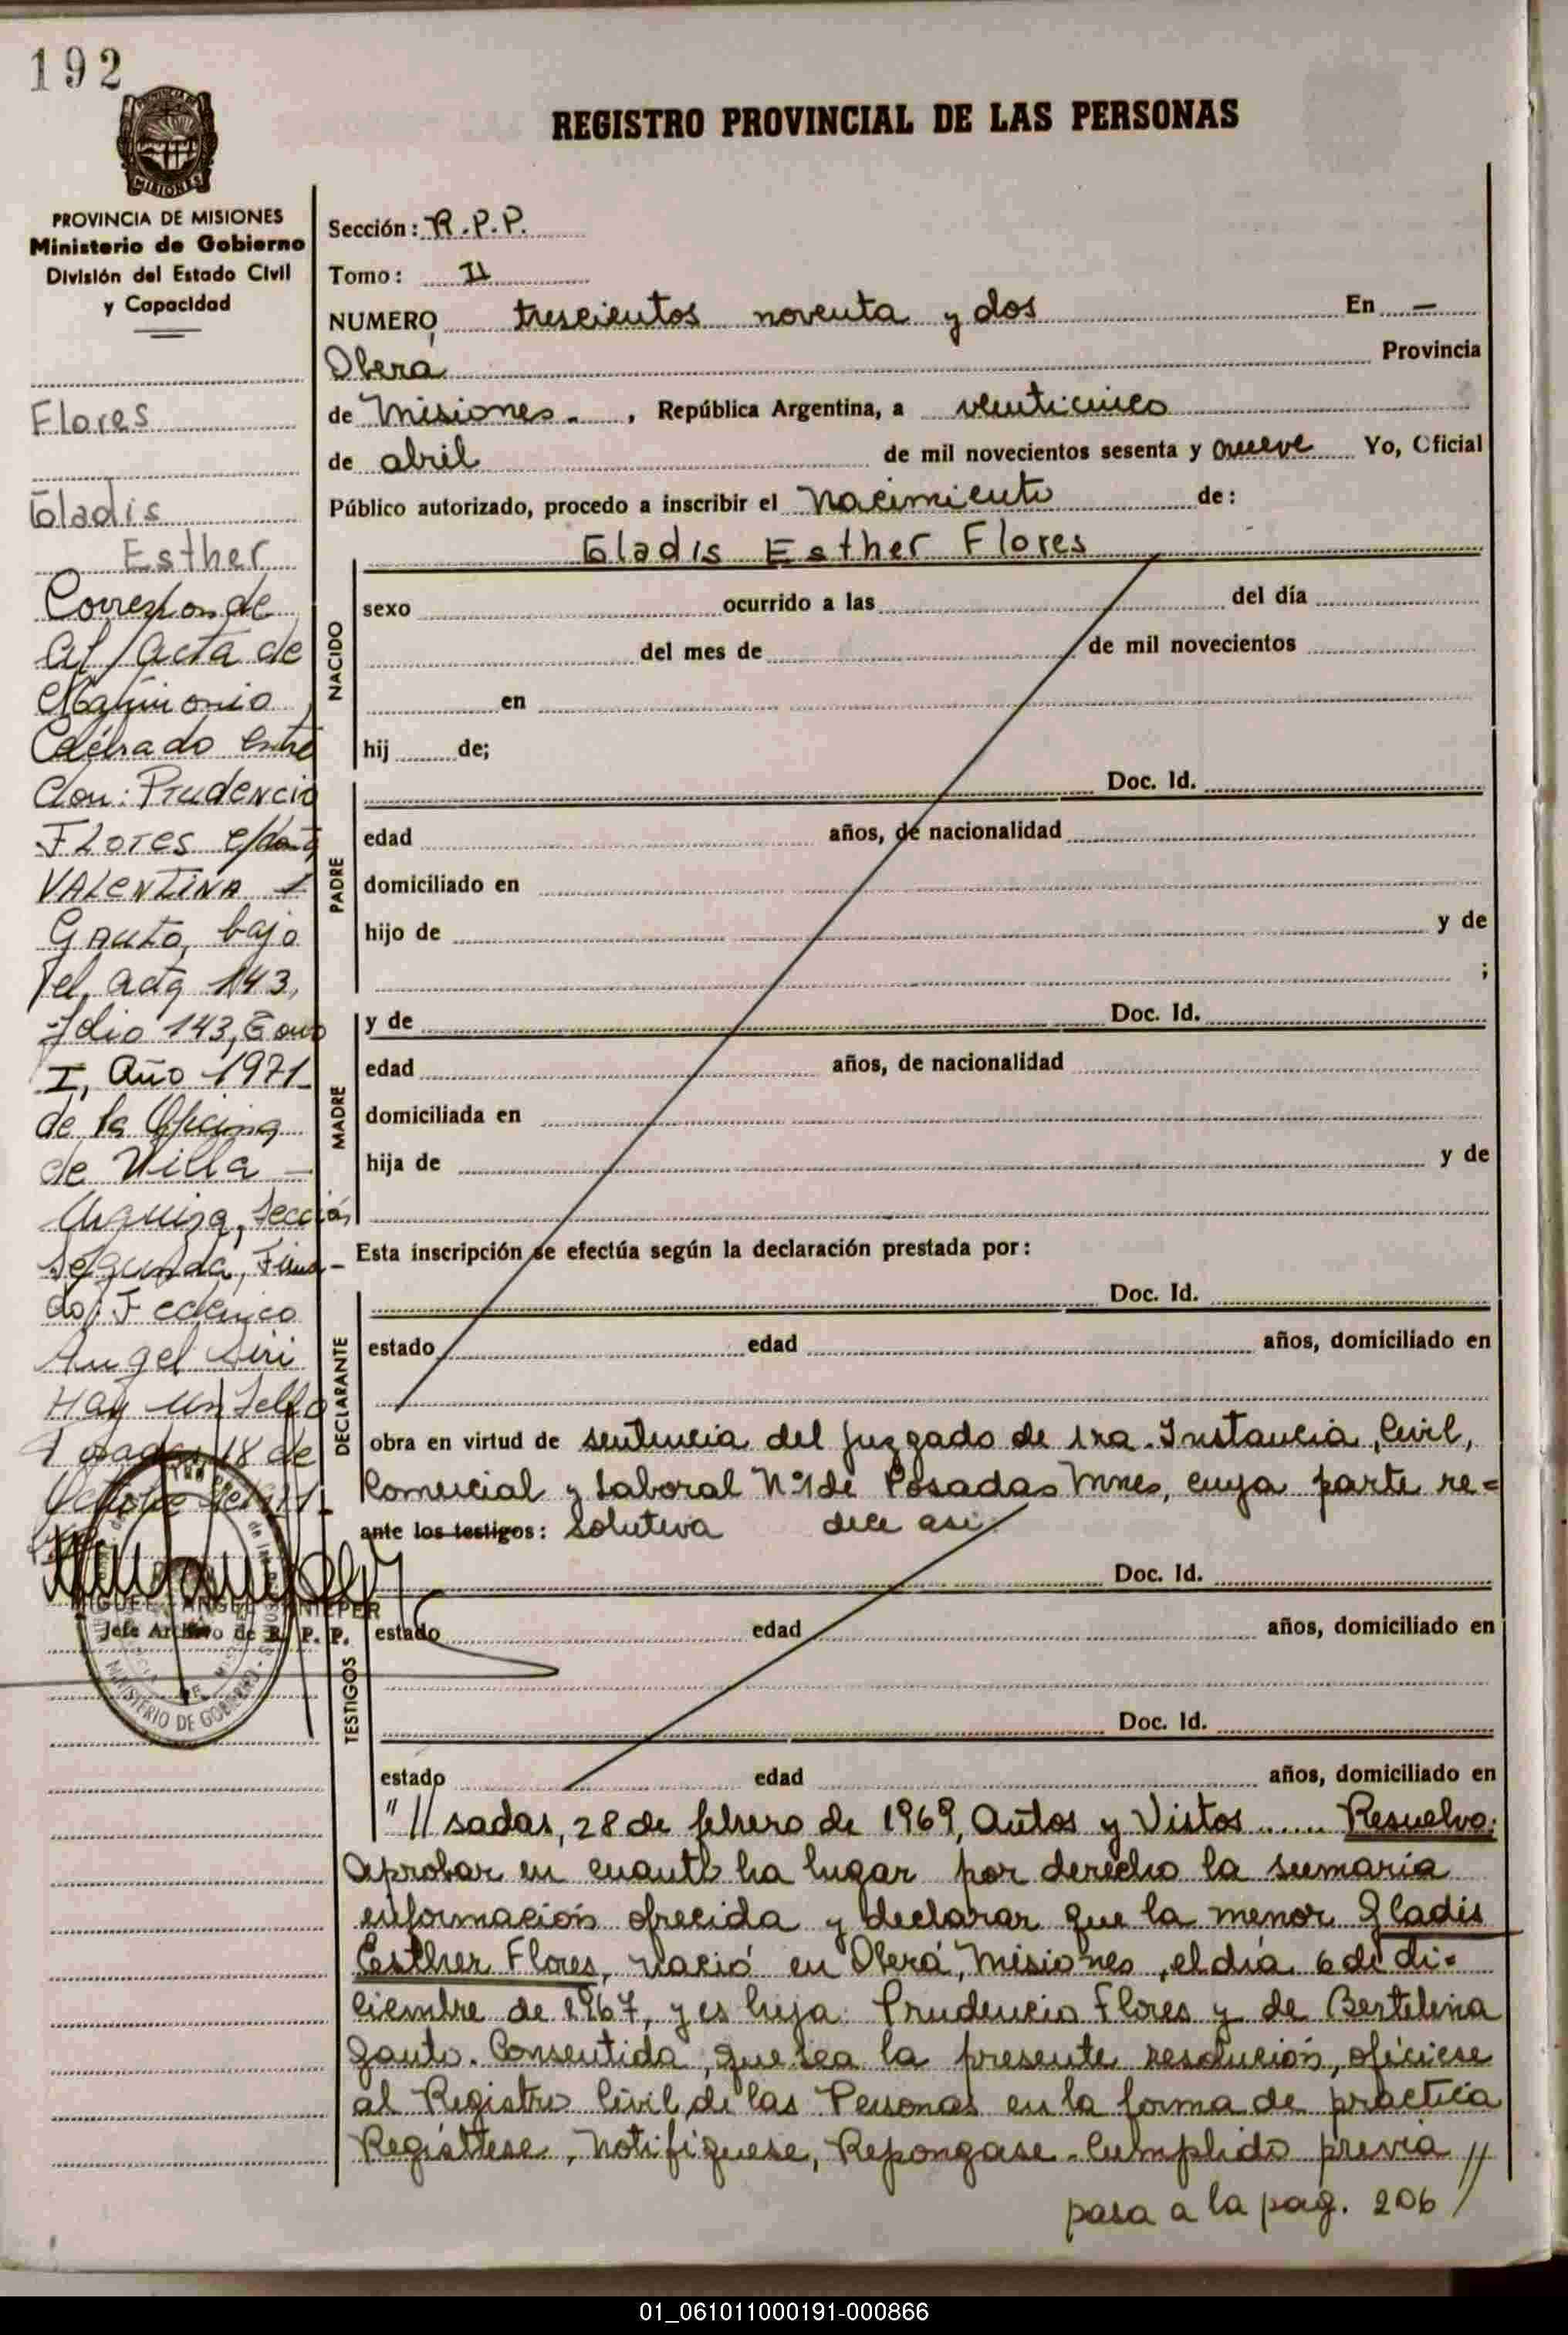 192
PROVINCIA DE MISIONES
Ministerio de Gobierno
División del Estado Civil
y Capacidad
Flores
Gladis
Esther
Corresponde
al Acta de
Matrimonio
Celebrado entre
don: Prudencio
FLORES c/doña
VALENTINA
GAUTO, bajo
el acta 143,
folio 143, Tomo
I, Año 1971
de la Oficina
de Villa
Urquiza, Sección
Segunda, Firma-
do: Federico
Angel Siri
Hay un Sello
Posadas 18 de
Octubre de
MIGUEL ANGEL
Jefe Archivo de R. P. P.
MINISTERIO DE GOBIERNO
REGISTRO PROVINCIAL DE LAS PERSONAS
Sección: R.P.P.
Tomo: II
NUMERO trescientos noventa y dos En —
Oberá Provincia
de Misiones. , República Argentina, a venticinco
de abril de mil novecientos sesenta y nueve Yo, Oficial
Público autorizado, procedo a inscribir el Nacimiento de:
Gladis Esther Flores
NACIDO
sexo ocurrido a las del día
del mes de de mil novecientos
en
hij de;
PADRE
Doc. Id.
edad años, de nacionalidad
domiciliado en
hijo de y de
;
MADRE
y de Doc. Id.
edad años, de nacionalidad
domiciliada en
hija de y de
Esta inscripción se efectúa según la declaración prestada por:
DECLARANTE
Doc. Id.
estado edad años, domiciliado en
obra en virtud de sentencia del juzgado de 1ra. Instancia, Civil,
Comercial y Laboral Nº1 de Posadas Mnes, cuya parte re=
ante los testigos: solutiva dece asi:
TESTIGOS
Doc. Id.
estado edad años, domiciliado en
Doc. Id.
estado edad años, domiciliado en
"//sadas, 28 de febrero de 1969, Autos y Vistos ..... Resuelvo:
Aprobar en cuanto ha lugar por derecho la sumaria
información ofrecida y declarar que la menor Gladis
Esther Flores, nació en Oberá, Misiones, el día 6 de di-
ciembre de 1967, y es hija: Prudencio Flores y de Bertelina
Gauto. Consentida, que sea la presente resolución, ofíciese
al Registro Civil de las Personas en la forma de práctica
Regístrese, Notifíquese, Repongase. Cumplido previa //
pasa a la pag. 206 /
01_061011000191-000866